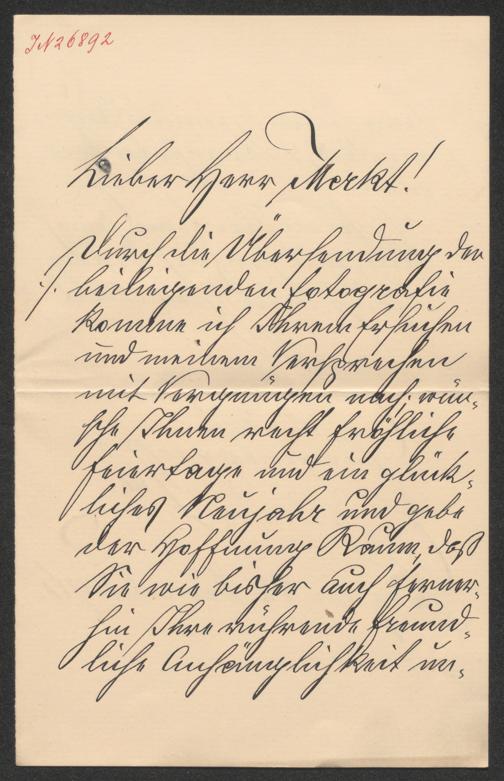 IN 26892
Lieber Herr Merkt!
Durch die Übersendung der
beiliegenden Fotografie
komme ich Ihrem Ersuchen
und meinem Versprechen
mit Vergnügen nach; wün-
sche Ihnen recht fröhliche
Feiertage und ein glück-
liches Neujahr und gebe
der Hoffnung Raum, daß
Sie wie bisher auch ferner-
hin Ihre rührende freund-
liche Anhänglichkeit un-